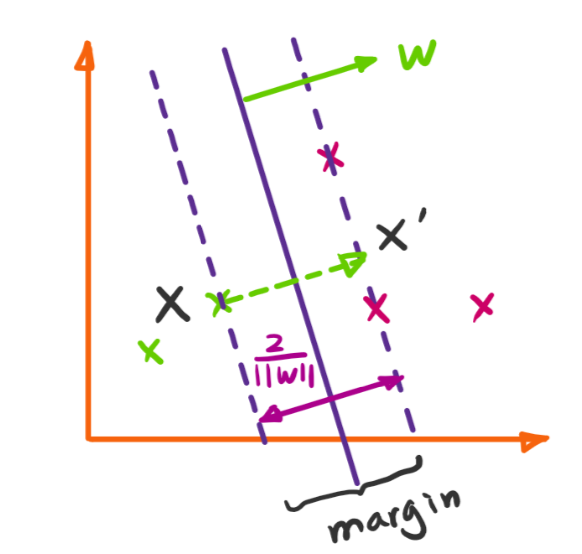 w
x'
x
2
||w||
margin